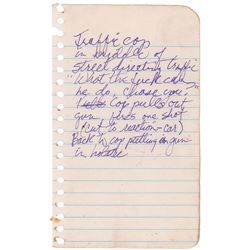 Traffic cop
in middle of
street directing traffic
"What the fuck can
he do, chase you?"
Cop pulls out
gun, fires one shot
(cut to reaction-car)
Back to cop putting gun
in holster